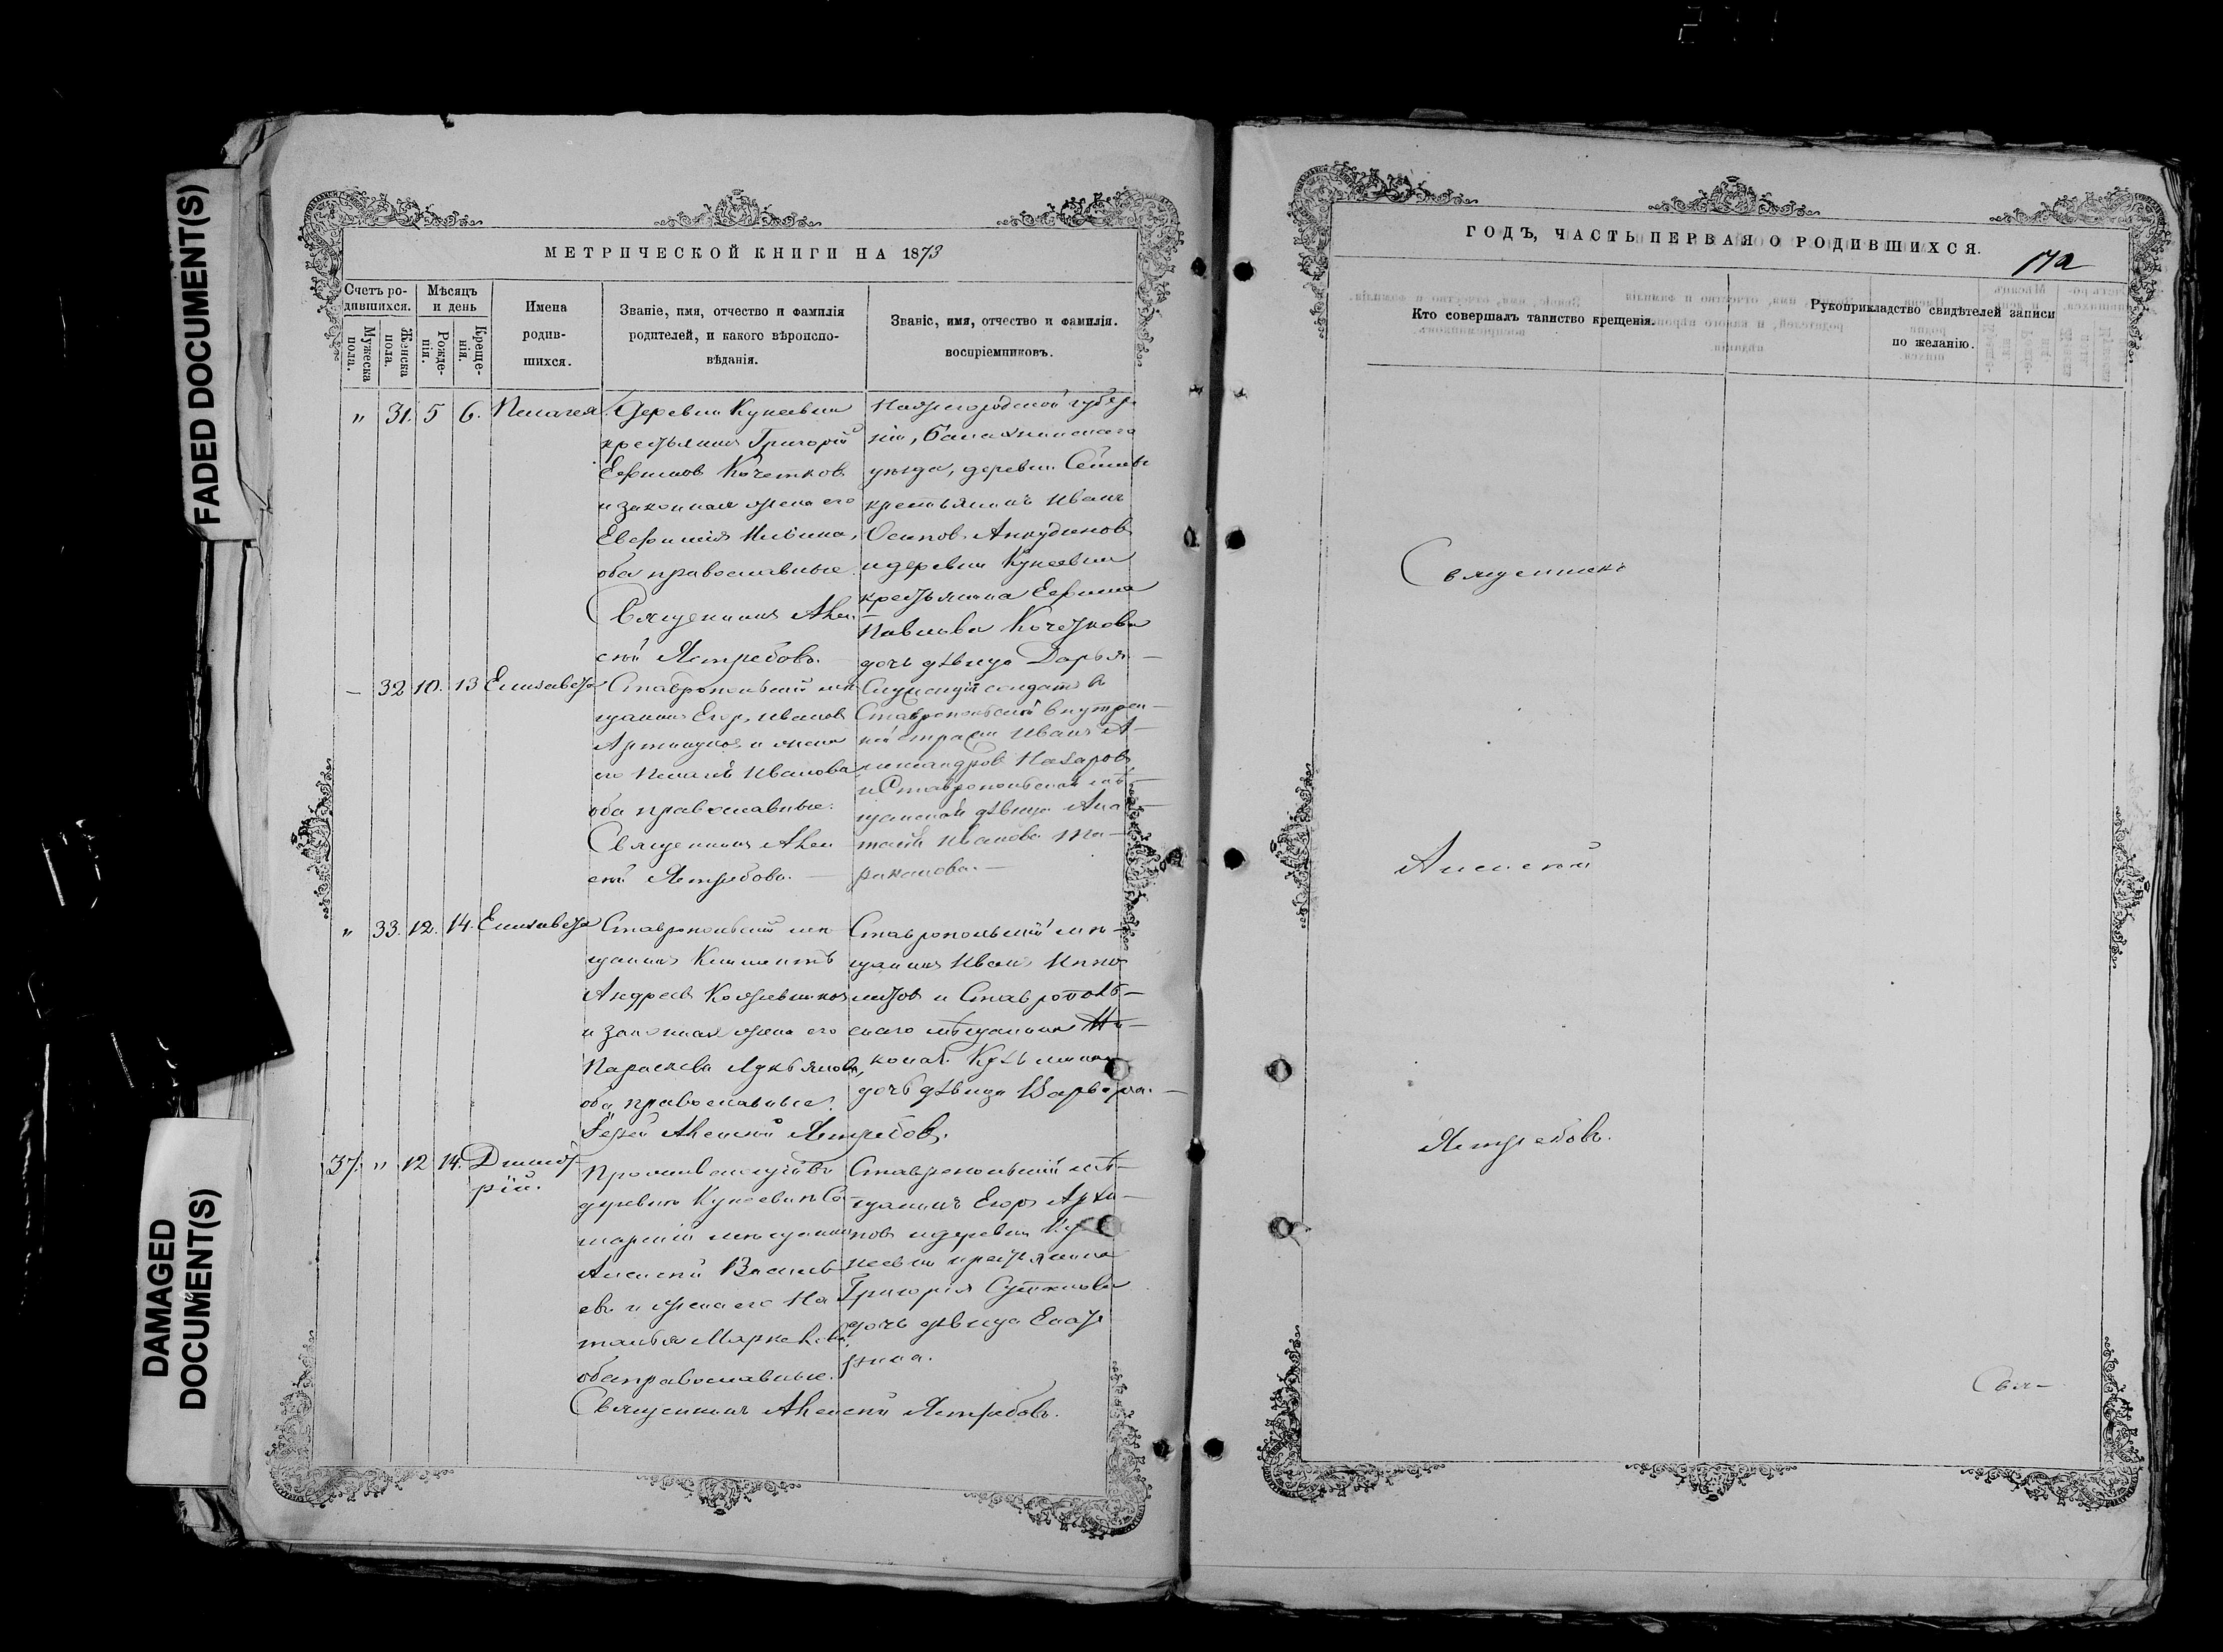 FADED DOCUMENT(S)
DAMAGED
DOCUMENT(S)
МЕТРИЧЕСКОЙ КНИГИ НА 1873
Счетъ ро-
дившихся.
Мужеска
пола.
Женска
пола.
Мѣсяцъ
и день
Рожде-
нія.
Креще-
нія.
Имена
родив-
шихся.
Званіе, имя, отчество и фамилія
родителей, и какого вѣроиспо-
вѣданія.
Званіе, имя, отчество и фамилія.
воспріемниковъ.
„ 31. 5 6. Пелагея
Деревни Кунеевки
крестьянинъ Григорій
Ефимовъ Кочетковъ
и законная жена его
Евфимія Ильина,
оба православные.
Священникъ Алек-
сій Ястребовъ.
Нижегородской губер-
ніи, Балахнинскаго
уѣзда, деревни
крестьянинъ Иванъ
Осиповъ Анкудиновъ
и деревни Кунеевки
крестьянина Ефима
Павлова Кочеткова
дочь дѣвица Дарья —
— 32 10. 13 Елизавета
Ставропольскій мѣ-
щанинъ Егоръ Ивановъ
и жена
его Ивановна
оба православные.
Священникъ Алек
сій Ястребовъ. —
Служащій солдатъ въ
Ставропольской внутрен-
ней стражи Иванъ А-
лександровъ Назаровъ
и Ставропольская мѣ-
щанская дѣвица Ана-
Иванова Та-
раканова. —
„ 33. 12. 14. Елизавета
Ставропольскій мѣ-
щанинъ Климентъ
Андреевъ Кожевниковъ
и законная жена его
Параскева Лукьянова,
оба православные.
Іерей Алексій Ястребовъ.
Ставропольскій мѣ-
щанинъ Иванъ Иппо-
литовъ и Ставрополь-
скаго мѣщанина Ни-
колая Кузьмина
дочь дѣвица Варвара. —
37. „ 12 14. Димит-
рій.
деревни Кунеевки Са-
марскій мѣщанинъ
Алексій Василь-
евъ и жена его На-
талья
оба православные.
Священникъ Алексій Ястребовъ.
Ставропольскій мѣ-
щанинъ Егоръ Архи-
повъ и деревни Ку-
неевки крестьянина
Григорія
дочь дѣвица Екате
рина.
ГОДЪ, ЧАСТЬ ПЕРВАЯ О РОДИВШИХСЯ.
172
Кто совершалъ таинство крещенія.
Рукоприкладство свидѣтелей записи
по желанію.
Священникъ
Алексій
Ястребовъ.
Свя-